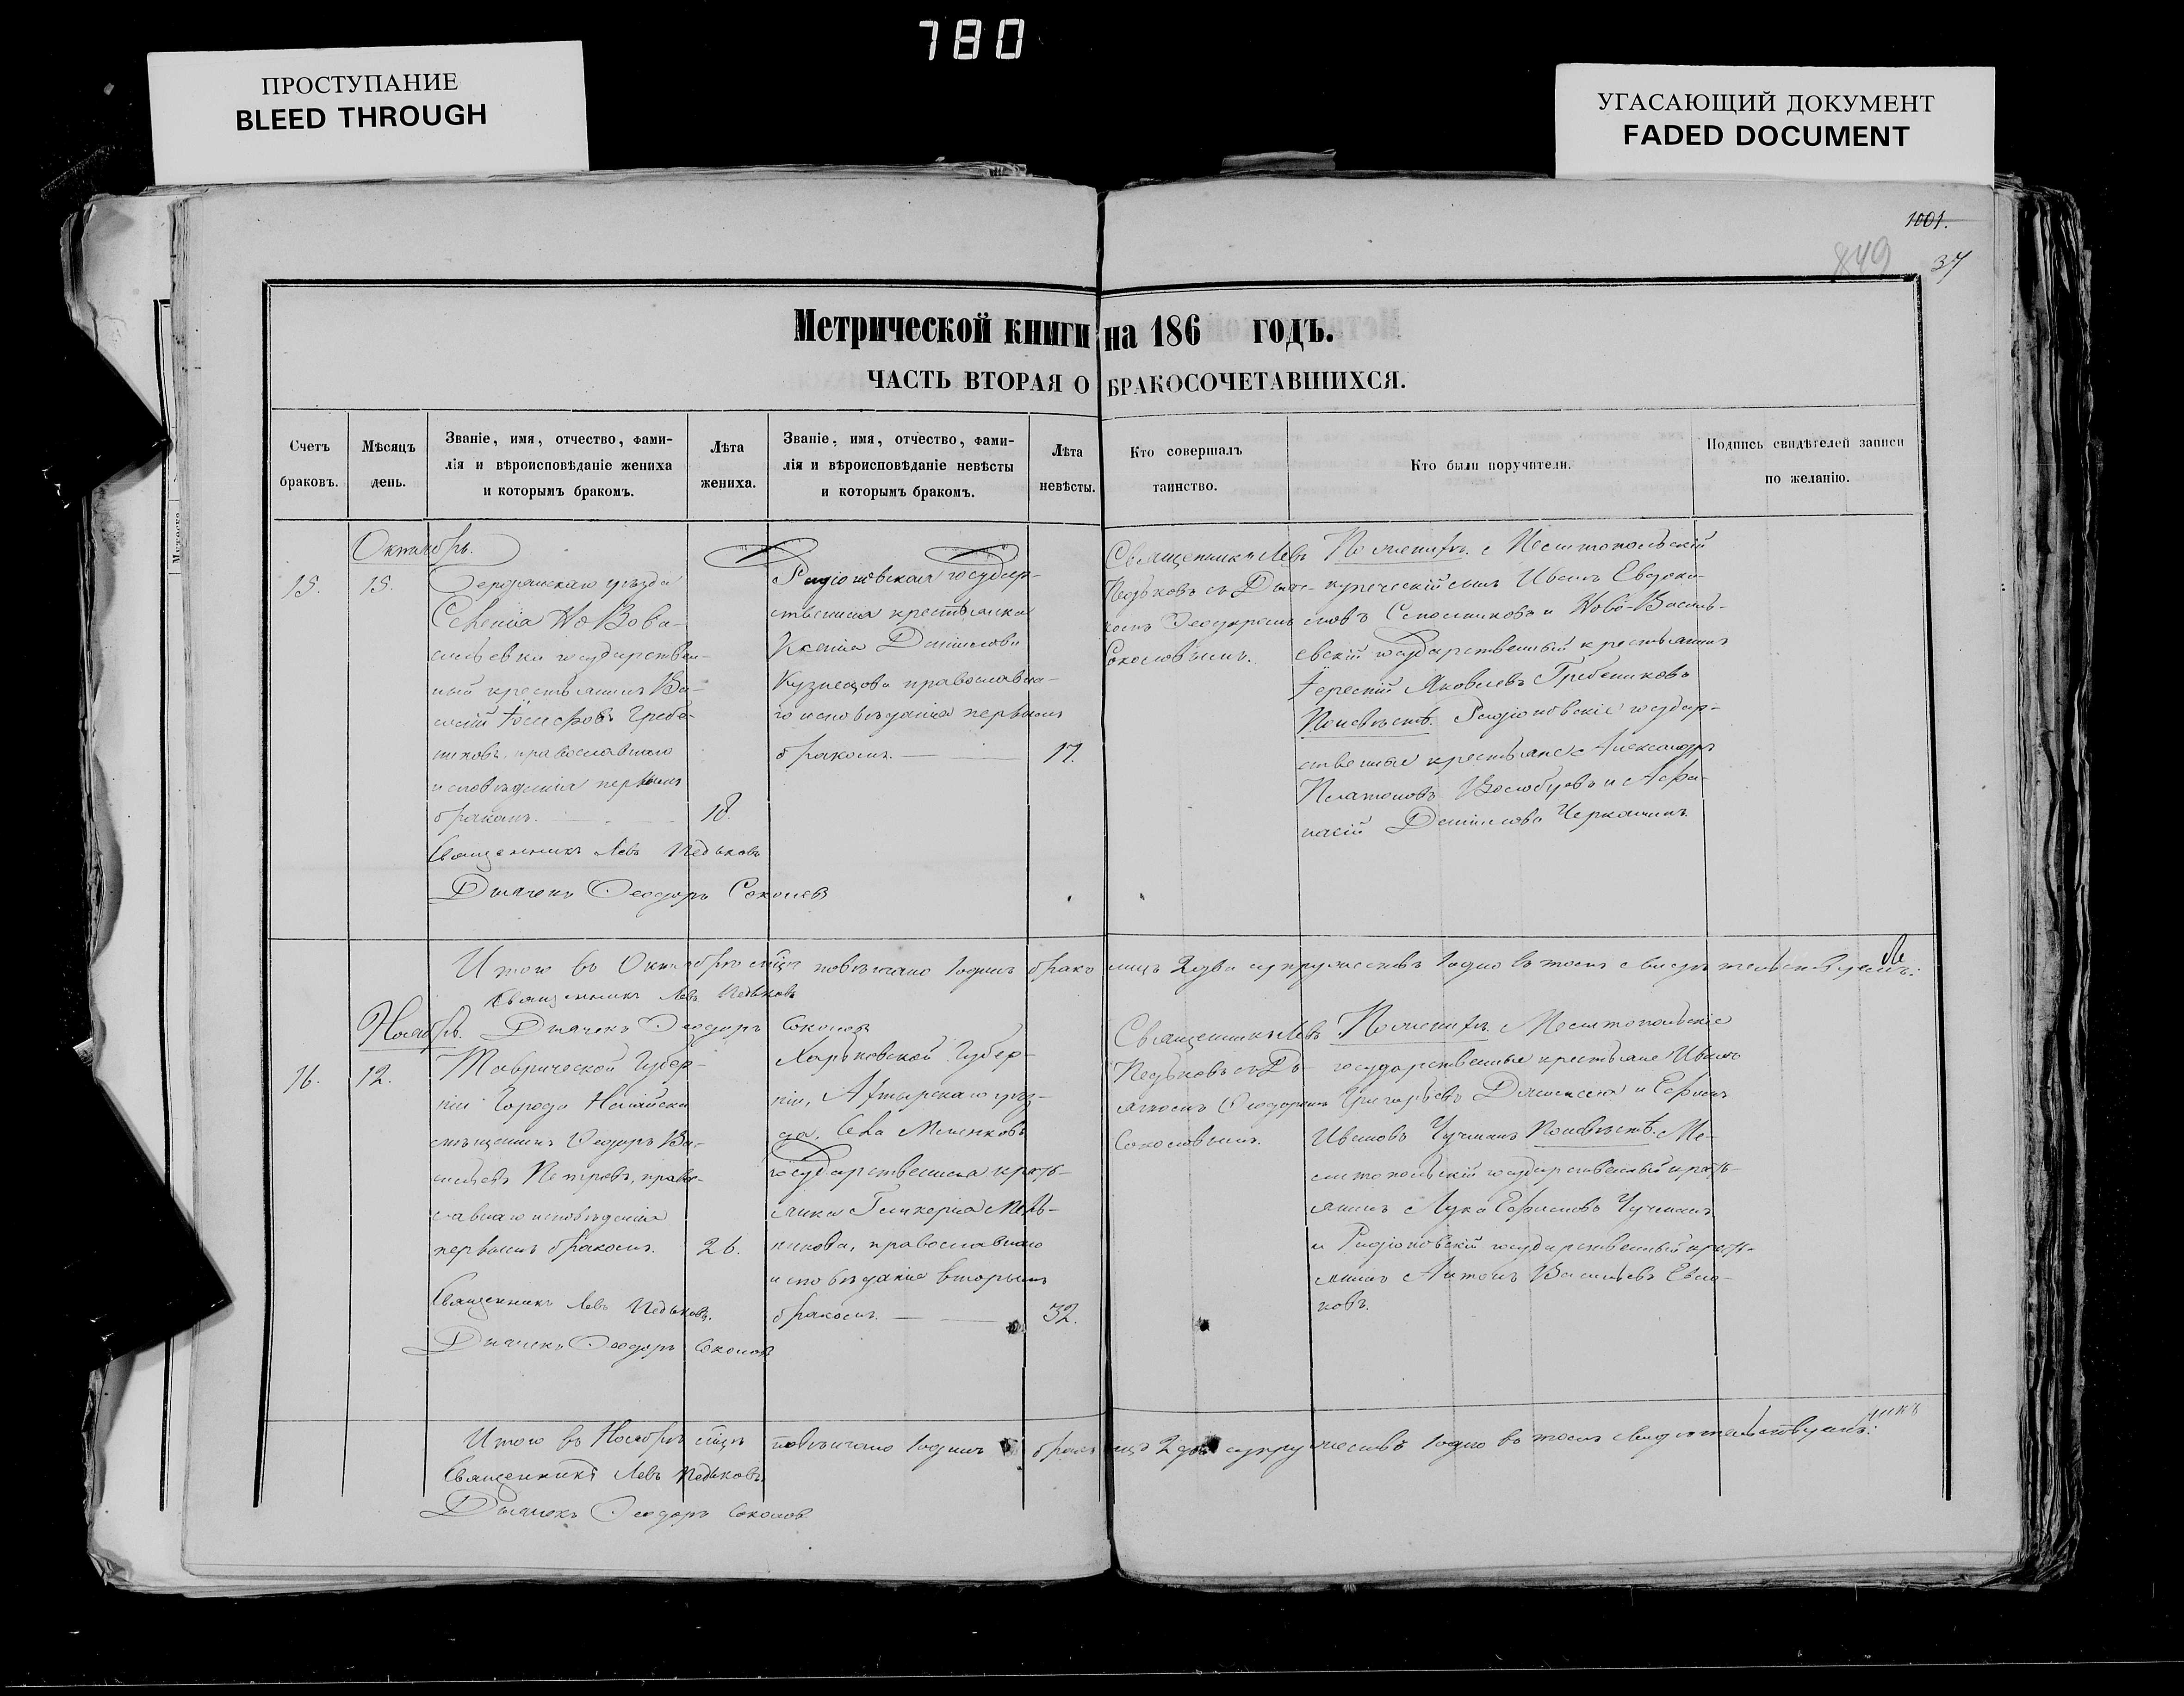 780
ПРОСТУПАНИЕ
BLEED THROUGH
УГАСАЮЩИЙ ДОКУМЕНТ
FADED DOCUMENT
1001.
849
37
Метрической книги на 186 годъ.
ЧАСТЬ ВТОРАЯ О БРАКОСОЧЕТАВШИХСЯ.
Счетъ
браковъ.
Мѣсяцъ
день.
Званіе, имя, отчество, фами-
лія и вѣроисповѣданіе жениха
и которымъ бракомъ.
Лѣта
жениха.
Званіе, имя, отчество, фами-
лія и вѣроисповѣданіе невѣсты
и которымъ бракомъ.
Лѣта
невѣсты.
Кто совершалъ
таинство.
Кто были поручители.
Подпись свидѣтелей записи
по желанію.
Октябрь.
15.
15.
уѣзда
Селенія
государствен-
ный крестьянинъ Ва-
силій Іосифовъ Гребе-
никовъ, православнаго
исповѣданія первымъ
бракомъ.
18.
Священникъ Левъ Педьковъ
Дьячекъ Ѳеодоръ Соколовъ
Родіоновская государ-
ственная крестьянка
Ксенія Данилова
Кузнецова православна-
го исповѣданія первымъ
бракомъ.
17.
Священникъ Левъ
Педьковъ съ Дьяч-
комъ Ѳеодоромъ
Соколовымъ.
По женихѣ: Мелитопольскій
купеческій сынъ Иванъ Евдоки-
мовъ и Ново-Василь-
евскій государственный крестьянинъ
Яковлевъ Гребениковъ
По невѣстѣ. Родіоновскіе государ-
ственные крестьяне: Александръ
Платоновъ и Афа-
насій Даниловъ
Итого въ Октябрѣ мцѣ повѣнчано 1 одинъ бракъ лицъ 2 два супружествъ 1 одно въ томъ свидѣтельствуемъ:
Священникъ Левъ Педьковъ
Дьячекъ Ѳеодоръ Соколовъ
Ноябрь.
16.
12.
Таврической Губер-
ніи Города Ногайска
мѣщанинъ Ѳеодоръ Ва-
сильевъ Петровъ, право-
славнаго исповѣданія
первымъ бракомъ.
26.
Священникъ Левъ Педьковъ.
Дьячекъ Ѳеодоръ Соколовъ
Харьковской Губер-
ніи, Ахтырскаго уѣз-
да,
государственная кресть-
янка Гликерія Мель-
никова, православнаго
исповѣданія вторымъ
бракомъ.
32.
Священникъ Левъ
Педьковъ съ Дь-
ячкомъ Ѳеодоромъ
Соколовымъ.
По женихѣ: Мелитопольскіе
государственные крестьяне Иванъ
Григорьевъ и Ефимъ
Ивановъ По невѣстѣ. Ме-
литопольскій государственный кресть-
янинъ Лука Ефимовъ
и Родіоновскій государственный кресть-
янинъ Антонъ Васильевъ
Итого въ Ноябрѣ мцѣ повѣнчано 1 одинъ бракъ лицъ 2 два супружествъ 1 одно въ томъ свидѣтельствуемъ:
Священникъ Левъ Педьковъ
Дьячекъ Ѳеодоръ Соколовъ